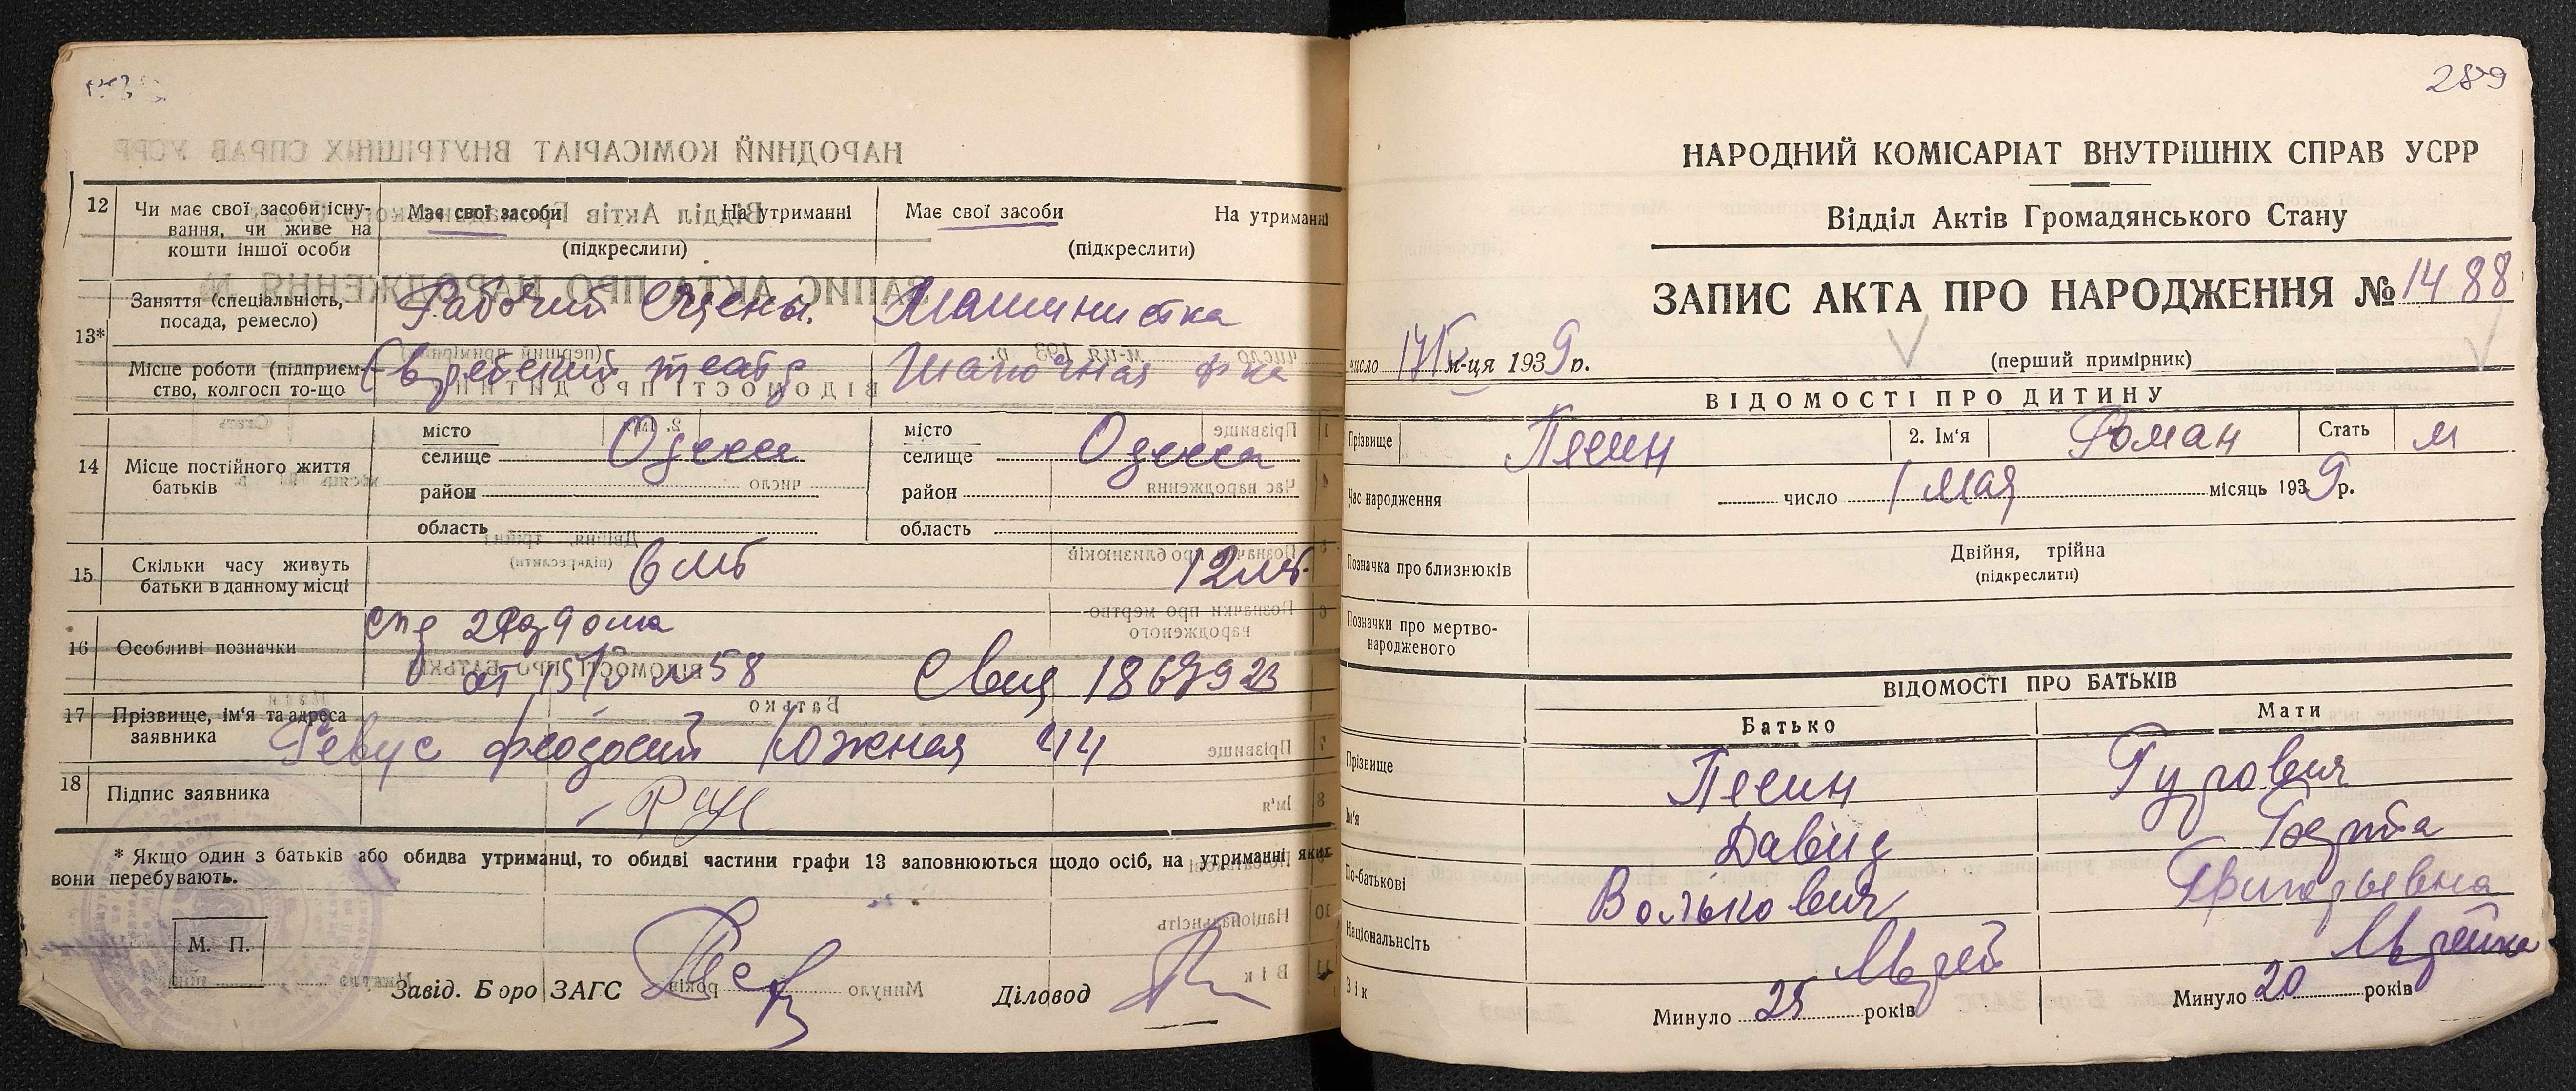 12 Чи має свої засоби існу-
вання, чи живе на
кошти іншої особи
Має свої засоби На утриманні
(підкреслити)
Має свої засоби На утриманні
(підкреслити)
13* Заняття (спеціальність,
посада, ремесло)
Рабочий Сцены. Машинистка
Місце роботи (підприєм-
ство, колгосп то-що
Еврейский театр Шапочная ф-ка
14 Місце постійного життя
батьків
місто
селище Одесса
район
область
місто
селище Одесса
район
область
15 Скільки часу живуть
батьки в данному місці
6 лет 12 лет
16 Особливі позначки
спр 2 роддома
от 15/V №58 Свид 1867923
17 Прізвище, ім'я та адреса
заявника
Ревус Феодосий Южная 44
18 Підпис заявника
* Якщо один з батьків або обидва утриманці, то обидві частини графи 13 заповнюються щодо осіб, на утриманні яких
вони перебувають.
М. П.
Завід. Бюро ЗАГС Діловод
289
НАРОДНИЙ КОМІСАРІАТ ВНУТРІШНІХ СПРАВ УСРР
Відділ Актів Громадянського Стану
ЗАПИС АКТА ПРО НАРОДЖЕННЯ № 1488
число 17/V м-ця 1939 р. (перший примірник)
ВІДОМОСТІ ПРО ДИТИНУ
Прізвище Песин 2. Ім'я Роман Стать м
Час народження число 1 мая місяць 1939 р.
Позначка про близнюків
Двійня, трійна
(підкреслити)
Позначки про мертво-
народженого
ВІДОМОСТІ ПРО БАТЬКІВ
Батько Мати
Прізвище Песин Гурович
Ім'я Давид Берта
По-батькові Волькович Григорьевна
Національність Еврей Еврейка
Вік Минуло 25 років Минуло 20 років